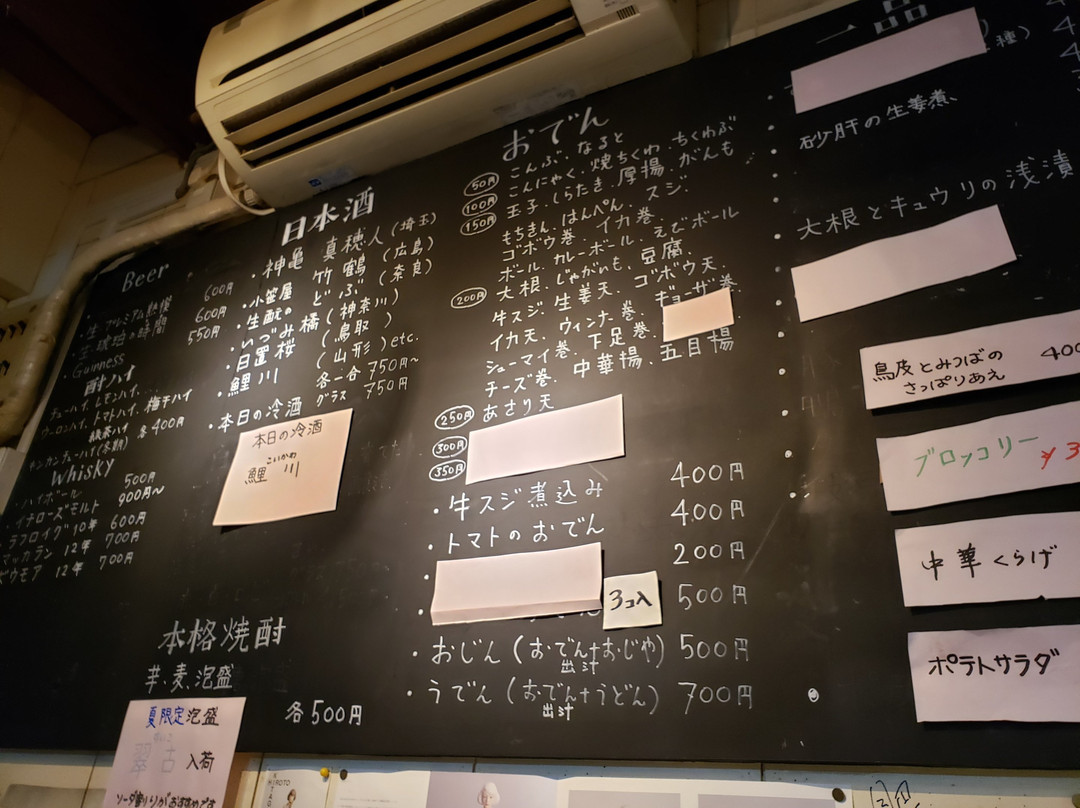 Beer
・生 プレミアム熟撰 600円
・生 琥珀の時間 600円
・Guinness 550円
酎ハイ
チューハイ、レモンハイ、
ウーロンハイ、トマトハイ、梅干ハイ
緑茶ハイ 各400円
Whisky
ハイボール 500円
900円〜
ラフロイグ 10年 600円
マッカラン 12年 700円
ボウモア 12年 700円
日本酒
・神亀 真穂人(埼玉)
・小笹屋 竹鶴(広島)
・生酛の どぶ(奈良)
・いづみ橘(神奈川)
・日置桜(鳥取)
・鯉川(山形)etc.
各一合 750円〜
・本日の冷酒 グラス 750円
本日の冷酒
こいかわ
鯉川
本格焼酎
芋、麦、泡盛
各500円
夏限定泡盛
入荷
おでん
50円 こんぶ、なると
100円 こんにゃく、焼ちくわ、ちくわぶ
150円 玉子、しらたき、厚揚、がんも
もちきん、はんぺん、スジ
ゴボウ巻、イカ巻、
ボール、カレーボール、えびボール
大根、じゃがいも、豆腐、
200円 牛スジ、生姜天、ゴボウ天、
イカ天、ウィンナ巻、ギョーザ巻
シューマイ巻、下足巻、
チーズ巻、中華揚、五目揚
250円 あさり天
300円
350円
・牛スジ煮込み 400円
・トマトのおでん 400円
200円
3コ入 500円
・おじん(おでん+おじや) 500円
出汁
・うでん(おでん+うどん) 700円
出汁
一品
種)
砂肝の生姜煮、
大根とキュウリの浅漬
鳥皮とみつばの 400
さっぱりあえ
ブロッコリー ¥3
中華くらげ
ポテトサラダ